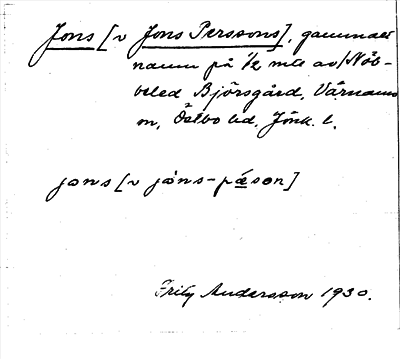 Jons [v Jons Perssons], gammalt
namn på 1/2 mtl av Nöb-
beled Björsgård, Värnamo
sn, Östbo hd, Jönk. l.
jons [v jòns-pæson]
Fritz Andersson 1930.